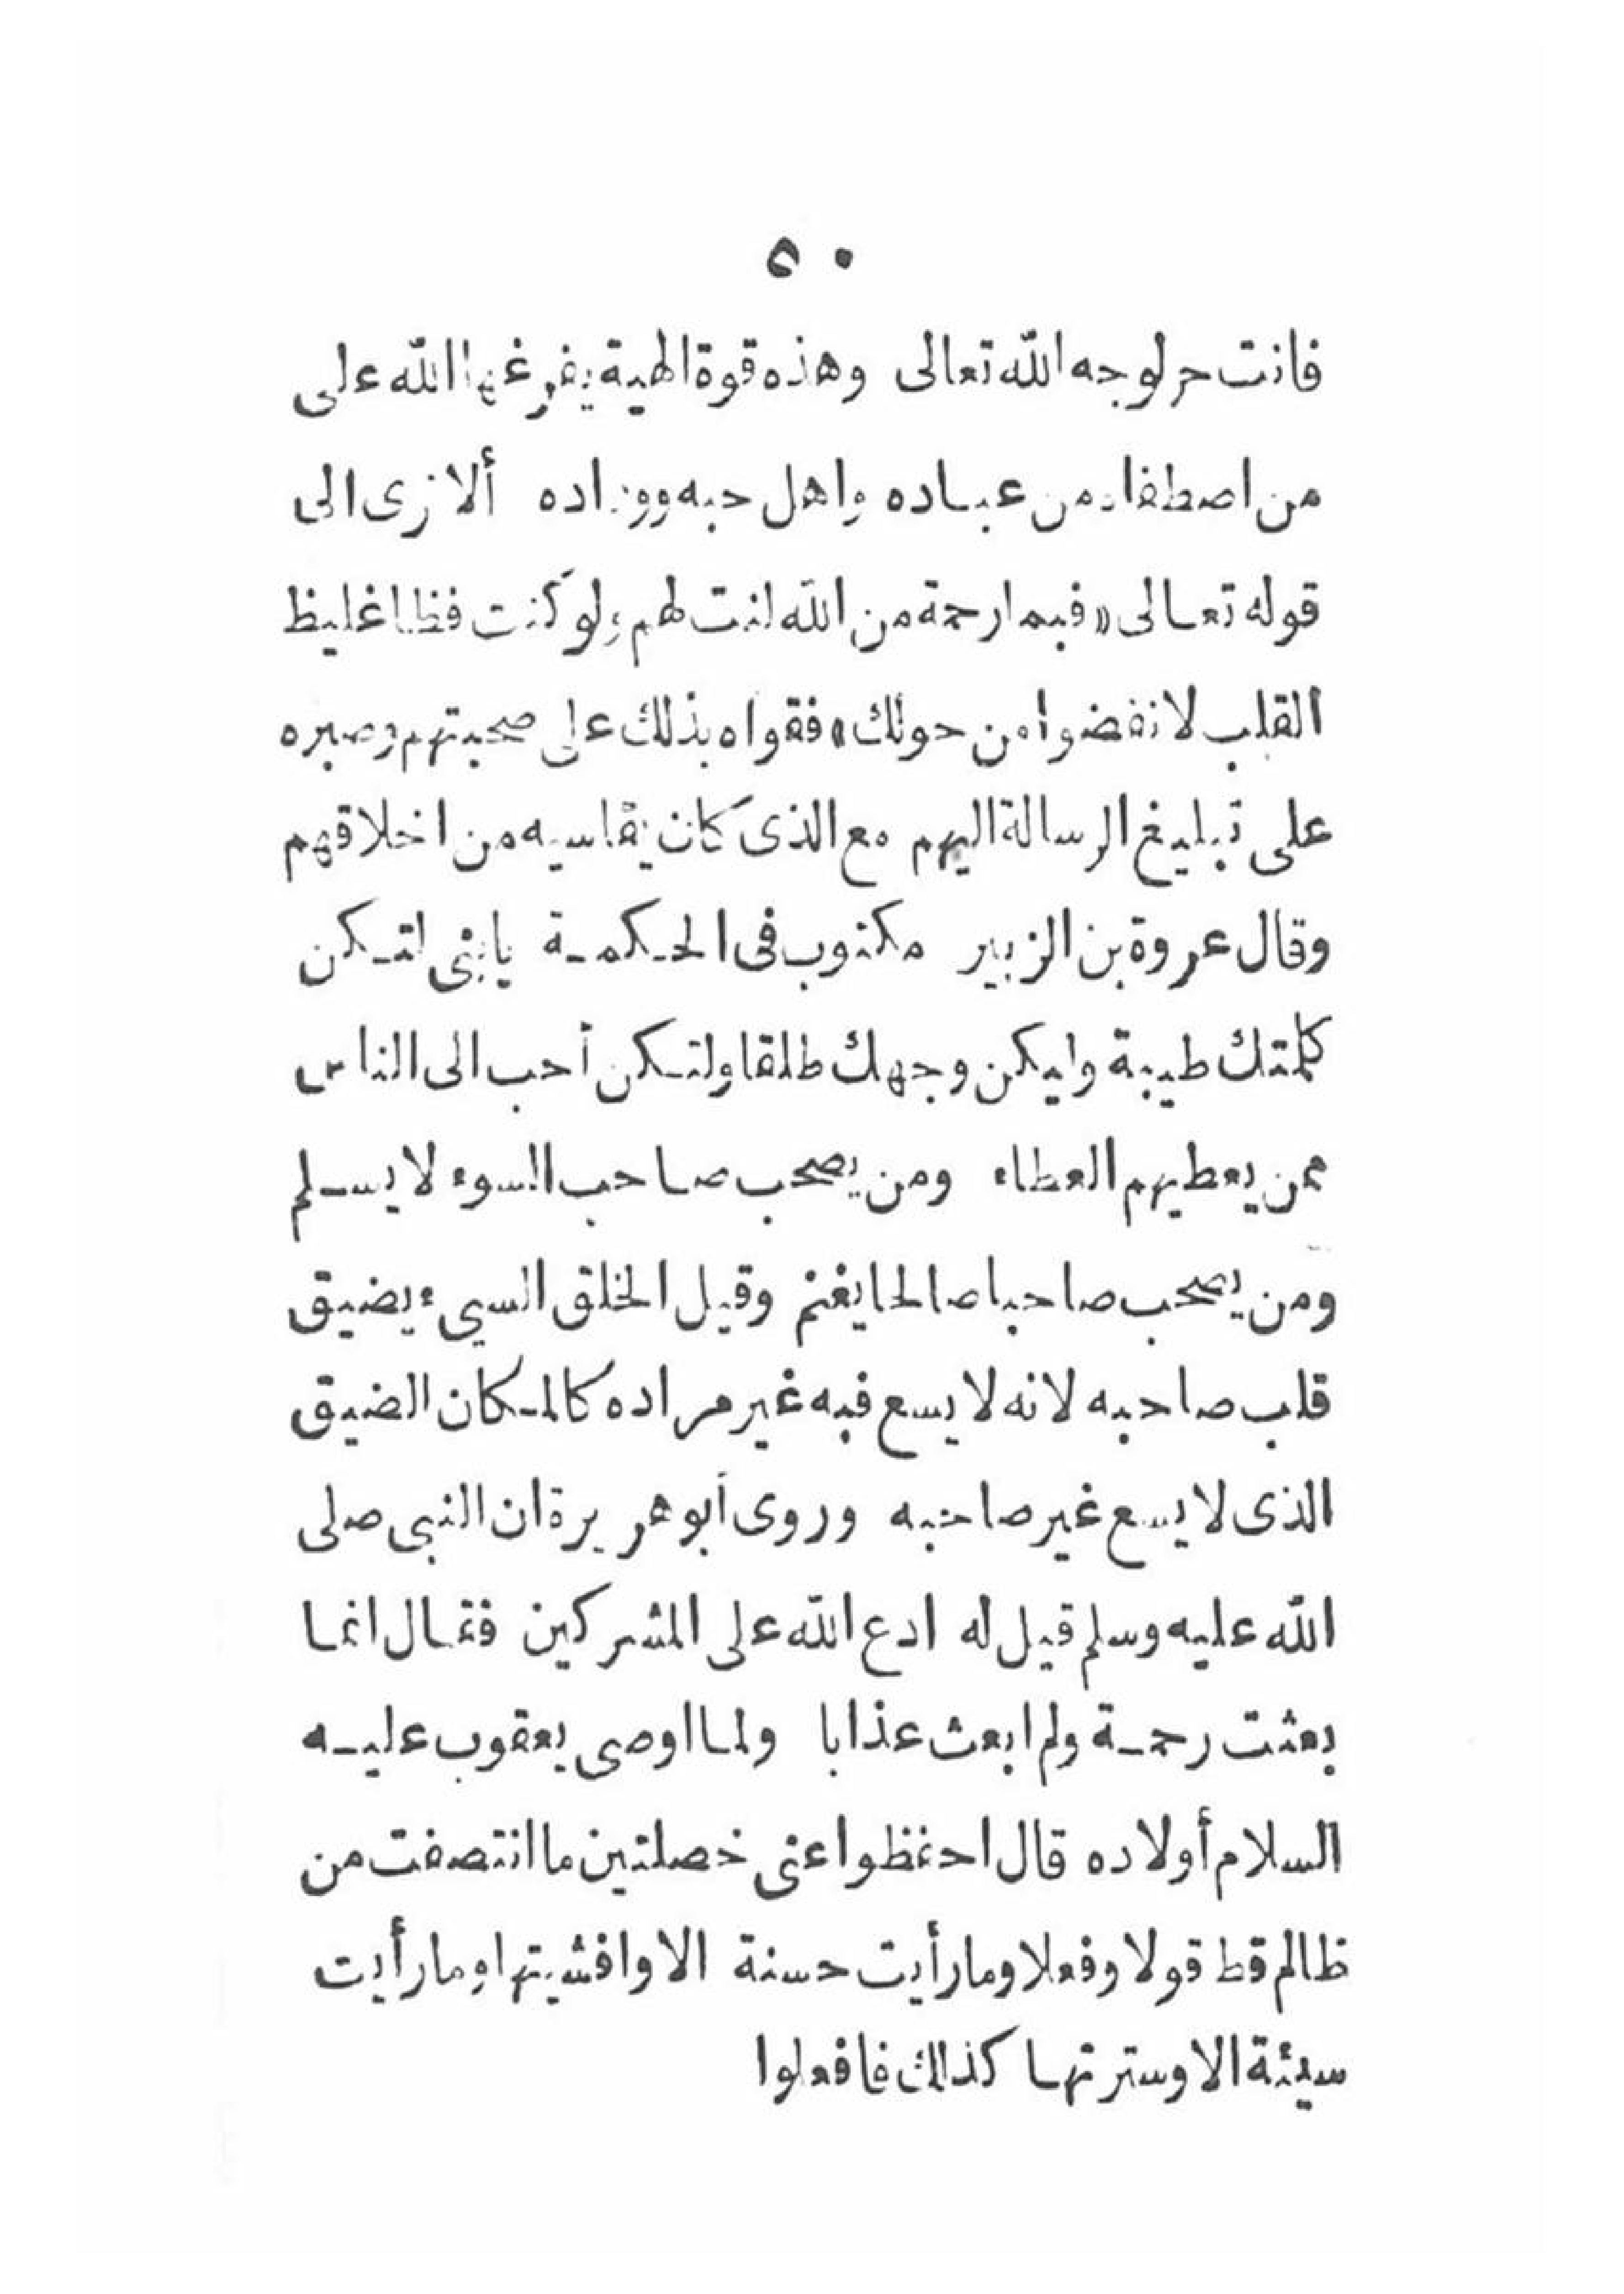 ٥٠
فانت حر لوجه الله تعالى وهذه قوة الهية يفرغها الله على
من اصطفاه من عباده واهل حبه ووداده ألا ترى الى
قوله تعالى «فبما رحمة من الله لنت لهم ولو كنت فظا غليظ
القلب لانفضوا من حولك» فقواه بذلك على صحبتهم وصبره
على تبليغ الرسالة اليهم مع الذى كان يقاسيه من اخلاقهم
وقال عروة بن الزبير مكتوب فى الحكمة يا بنى لتكن
كلمتك طيبة وليكن وجهك طلقا ولتكن أحب الى الناس
ممن يعطيهم العطاء ومن يصحب صاحب السوء لا يسلم
ومن يصحب صاحبا صالحا يغنم وقيل الخلق السيىء يضيق
قلب صاحبه لانه لا يسع فيه غير مراده كالمكان الضيق
الذى لا يسع غير صاحبه وروى أبو هريرة ان النبى صلى
الله عليه وسلم قيل له ادع الله على المشركين فقال انما
بعثت رحمة ولم ابعث عذابا ولما اوصى يعقوب عليه
السلام أولاده قال احفظوا عنى خصلتين ما انتصفت من
ظالم قط قولا وفعلا وما رأيت حسنة الا وافشيتها وما رأيت
سيئة الا وسترتها كذلك فافعلوا